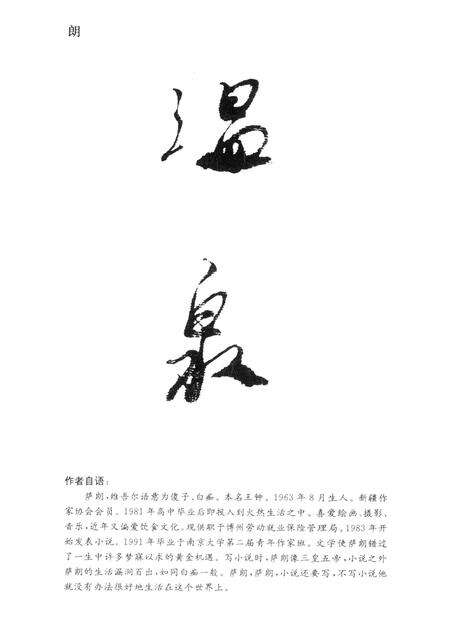 朗
温
泉
作者自语:
萨朗,维吾尔语意为傻子、白痴。本名王钟。1963年8月生人。新疆作
家协会会员。1981年高中毕业后即投入到火热生活之中。喜爱绘画、摄影、
音乐,近年又偏爱饮食文化。现供职于博州劳动就业保险管理局。1983年开
始发表小说。1991年毕业于南京大学第二届青年作家班。文学使萨朗错过
了一生中许多梦寐以求的黄金机遇。写小说时,萨朗像三皇五帝,小说之外
萨朗的生活漏洞百出,如同白痴一般。萨朗,萨朗,小说还要写,不写小说他
就没有办法很好地生活在这个世界上。